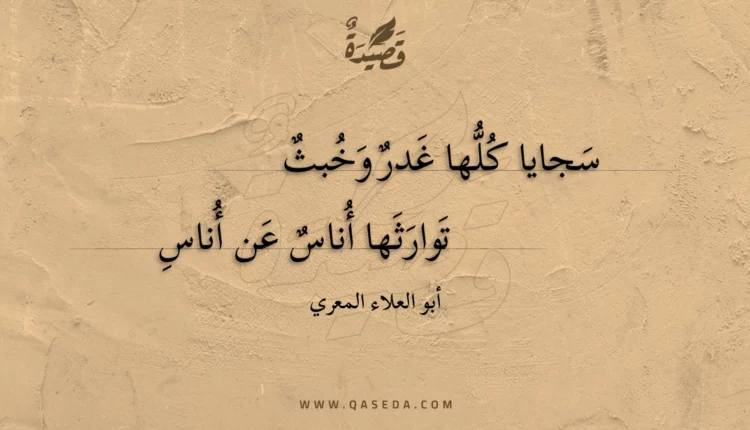 قَصِيدَةٌ
سَجايا كُلُّها غَدرٌ وَخُبثٌ
تَوارَثَها أُناسٌ عَن أُناسِ
أبو العلاء المعري
WWW.QASEDA.COM